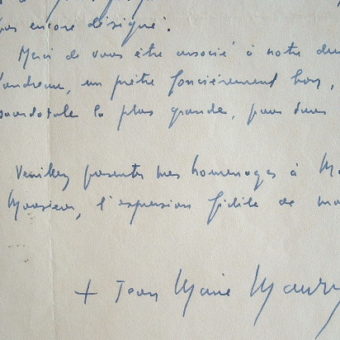 pas encore désigné.
Merci de vous être associé à notre deu
un prêtre foncièrement bon,
sacerdotale la plus grande, pour dans
Veuillez présenter mes hommages à Ma
Monsieur, l'expression fidèle de mo
+ Jean Marie Maury